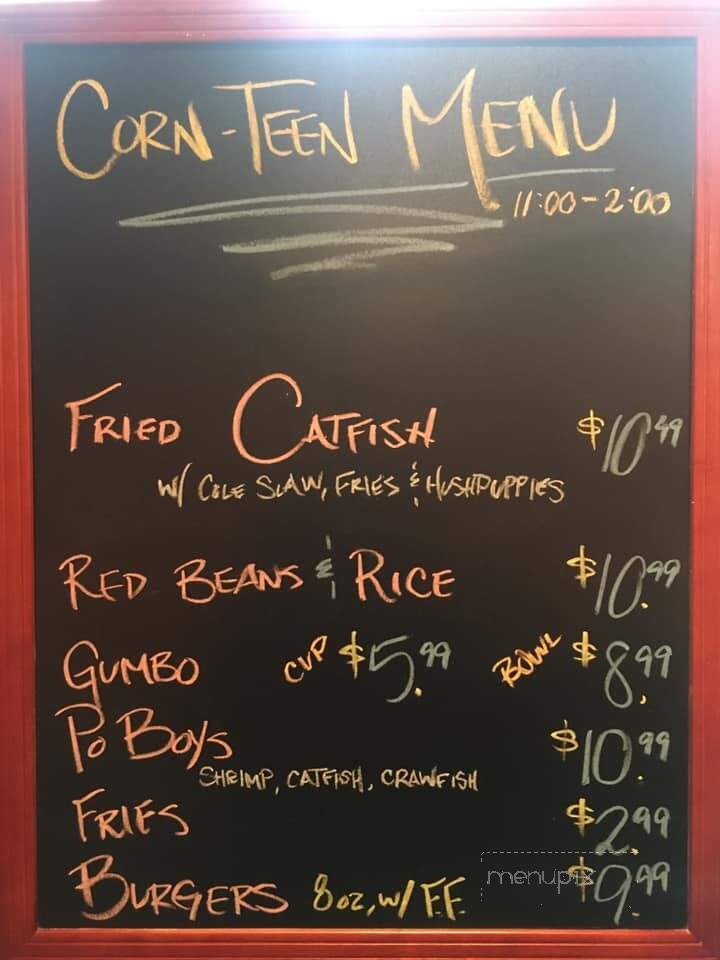 CORN-TEEN MENU
11:00-2:00
FRIED CATFISH $10.49
W/ COLE SLAW, FRIES & HUSHPUPPIES
RED BEANS & RICE $10.99
GUMBO CUP $5.99 BOWL $8.99
PO BOYS $10.99
SHRIMP, CATFISH, CRAWFISH
FRIES $2.99
BURGERS 8oz, w/ F.F. $9.99
menupix